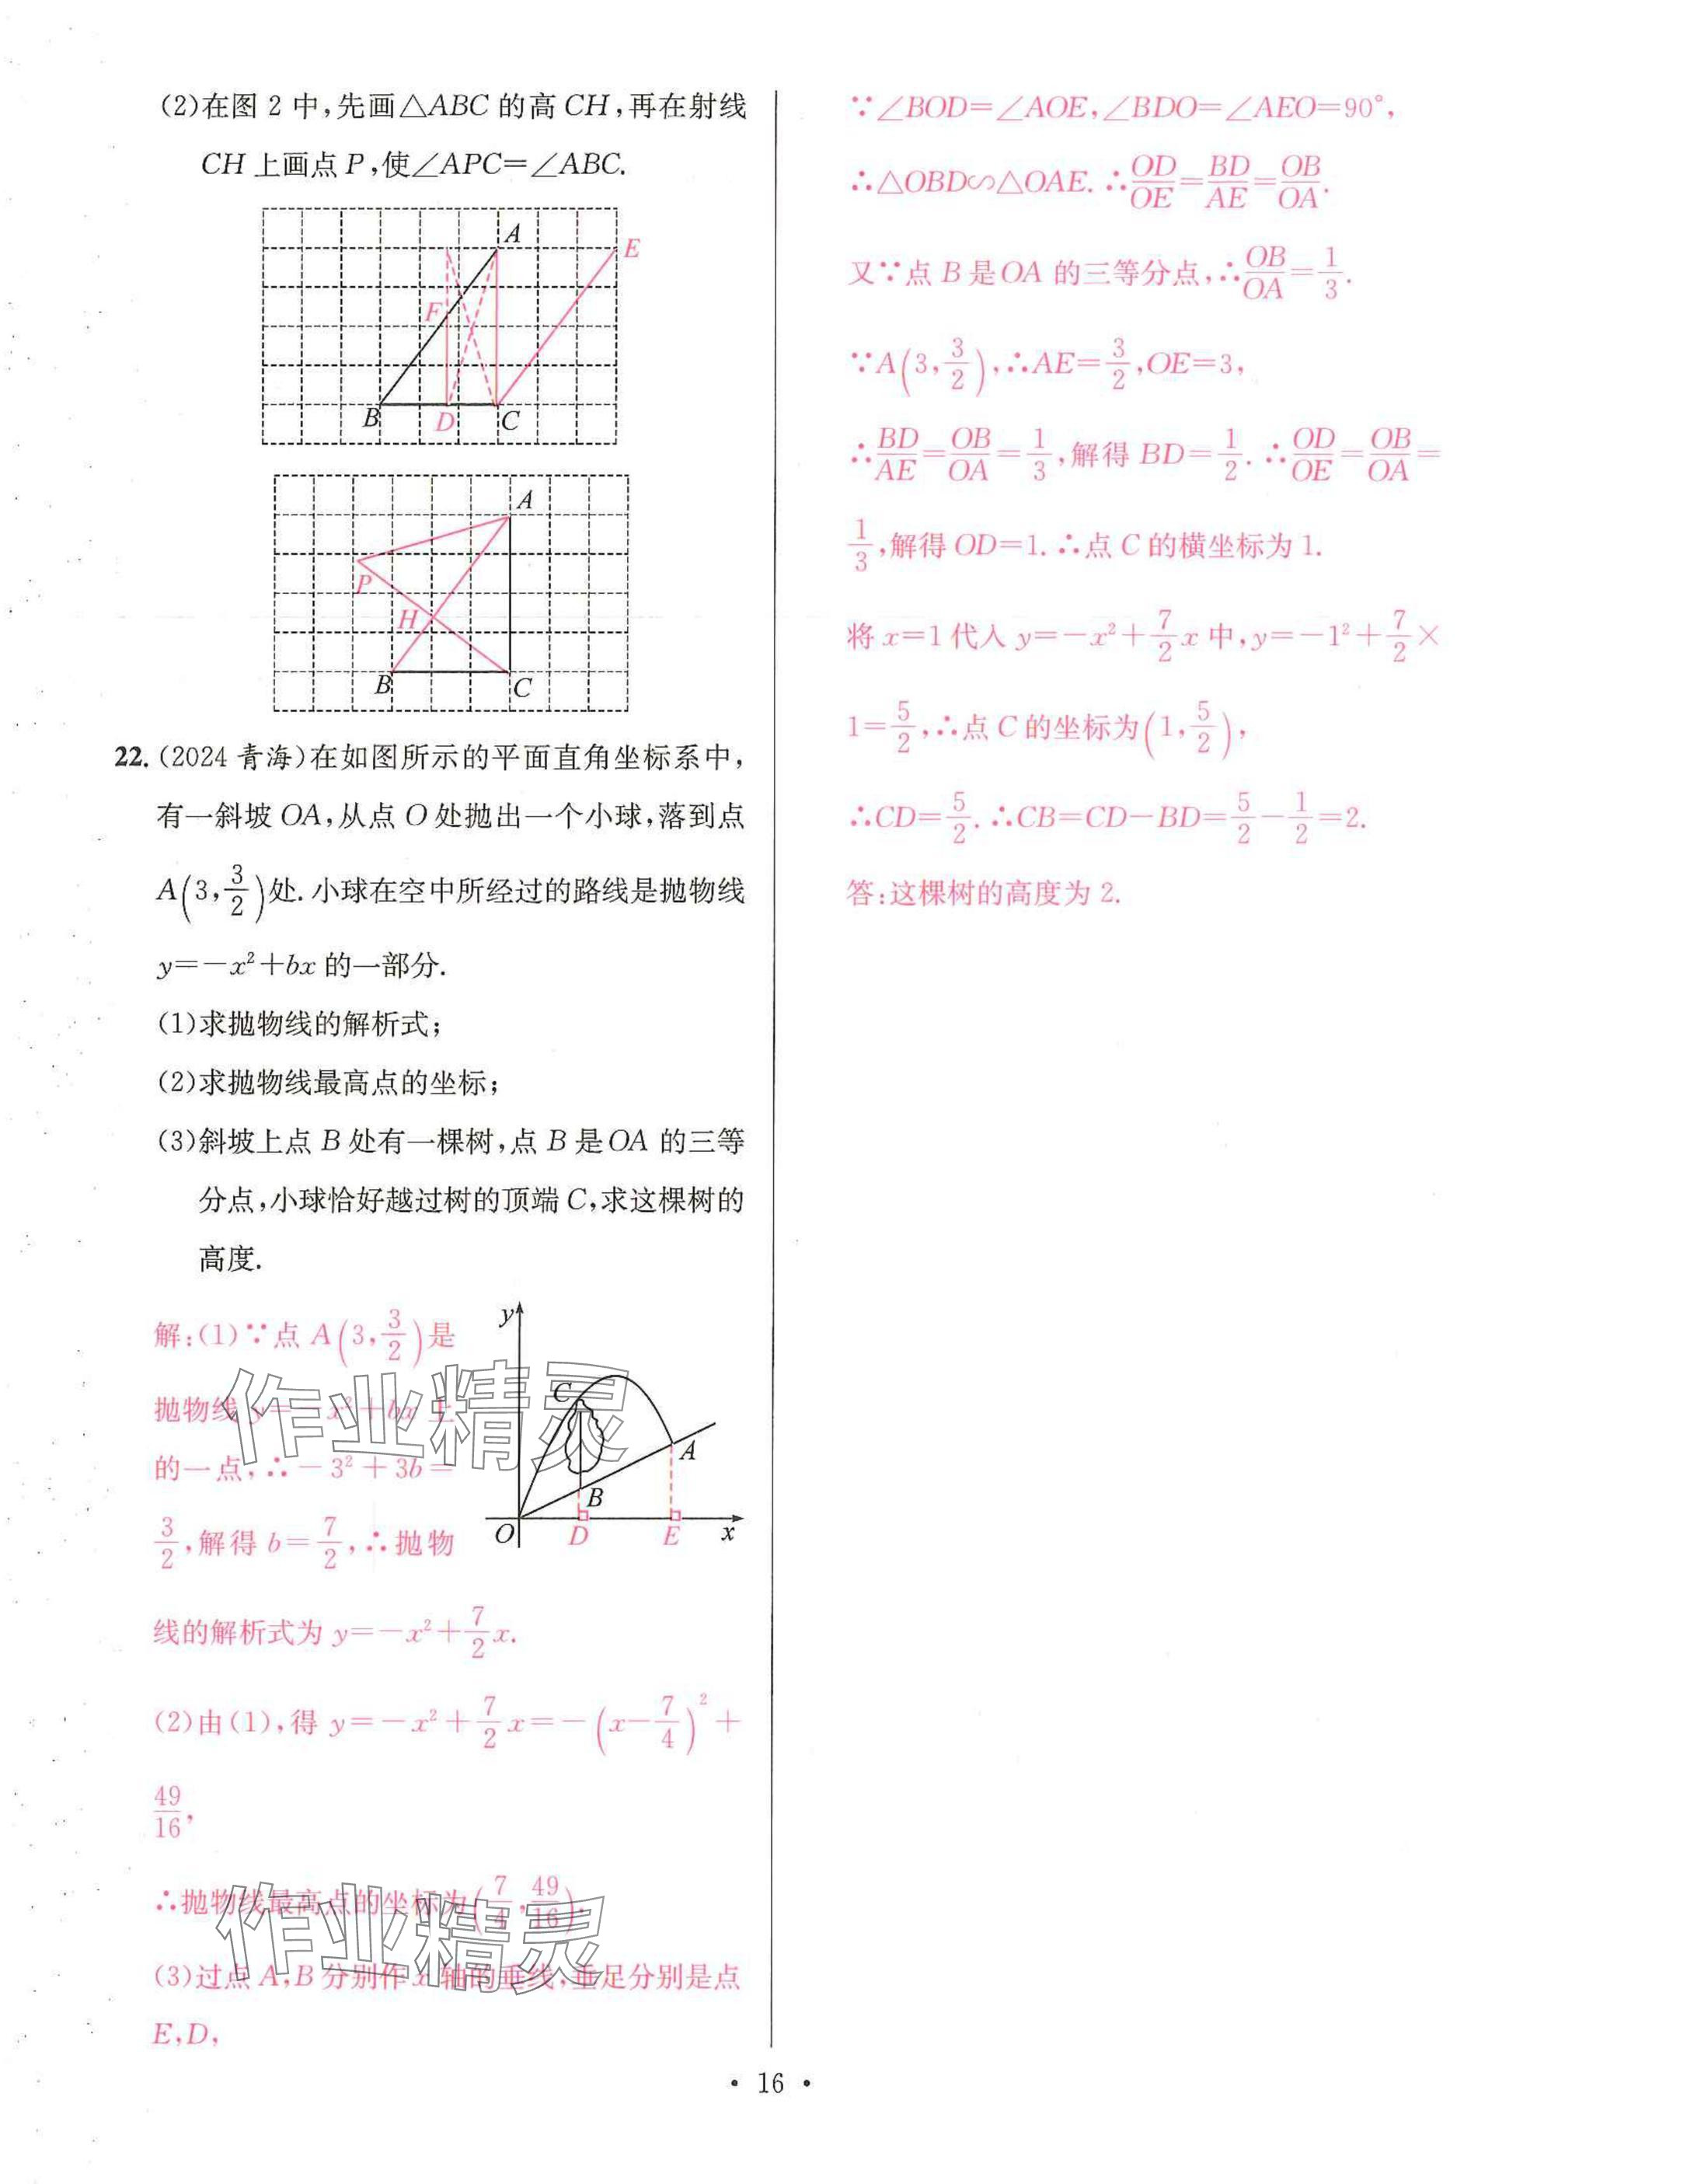 (2)在图 2 中,先画△ABC 的高 CH,再在射线
CH 上画点 P,使∠APC=∠ABC.
A
E
F
B
D
C
A
P
H
B
C
22.(2024 青海)在如图所示的平面直角坐标系中,
有一斜坡 OA,从点 O 处抛出一个小球,落到点
A(3,3/2)处.小球在空中所经过的路线是抛物线
y=-x²+bx 的一部分.
(1)求抛物线的解析式;
(2)求抛物线最高点的坐标;
(3)斜坡上点 B 处有一棵树,点 B 是 OA 的三等
分点,小球恰好越过树的顶端 C,求这棵树的
高度.
y
C
A
B
O
D
E
x
解:(1)∵点 A(3,3/2)是
抛物线 y=-x²+bx 上
的一点,∴-3²+3b=
3/2,解得 b=7/2,∴抛物
线的解析式为 y=-x²+7/2x.
(2)由(1),得 y=-x²+7/2x=-(x-7/4)²+
49/16,
∴抛物线最高点的坐标为(7/4,49/16).
(3)过点 A,B 分别作 x 轴的垂线,垂足分别是点
E,D,
∵∠BOD=∠AOE,∠BDO=∠AEO=90°,
∴△OBD∽△OAE.∴OD/OE=BD/AE=OB/OA.
又∵点 B 是 OA 的三等分点,∴OB/OA=1/3.
∵A(3,3/2),∴AE=3/2,OE=3,
∴BD/AE=OB/OA=1/3,解得 BD=1/2.∴OD/OE=OB/OA=
1/3,解得 OD=1.∴点 C 的横坐标为 1.
将 x=1 代入 y=-x²+7/2x 中,y=-1²+7/2×
1=5/2,∴点 C 的坐标为(1,5/2),
∴CD=5/2.∴CB=CD-BD=5/2-1/2=2.
答:这棵树的高度为 2.
作业精灵
作业精灵
• 16 •